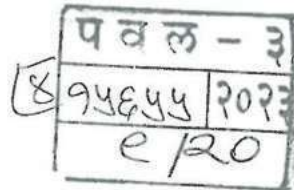 प व ल - ३
४ १५६५५ २०२३
९/२०